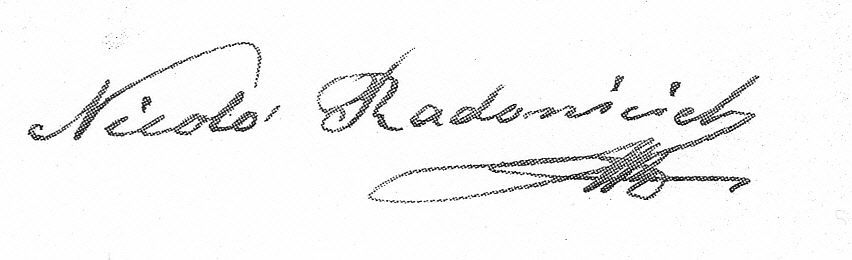 Nicoló Radonicich